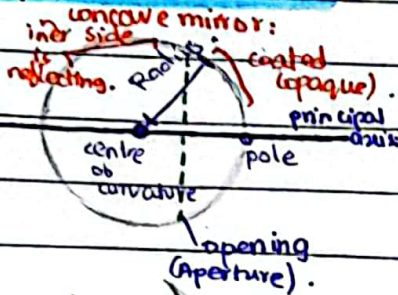 concave mirror:
iner side
is
reflecting.
Radi
coated
(opaque).
principal
axis
centre
of
curvature
pole
opening
(Aperture).